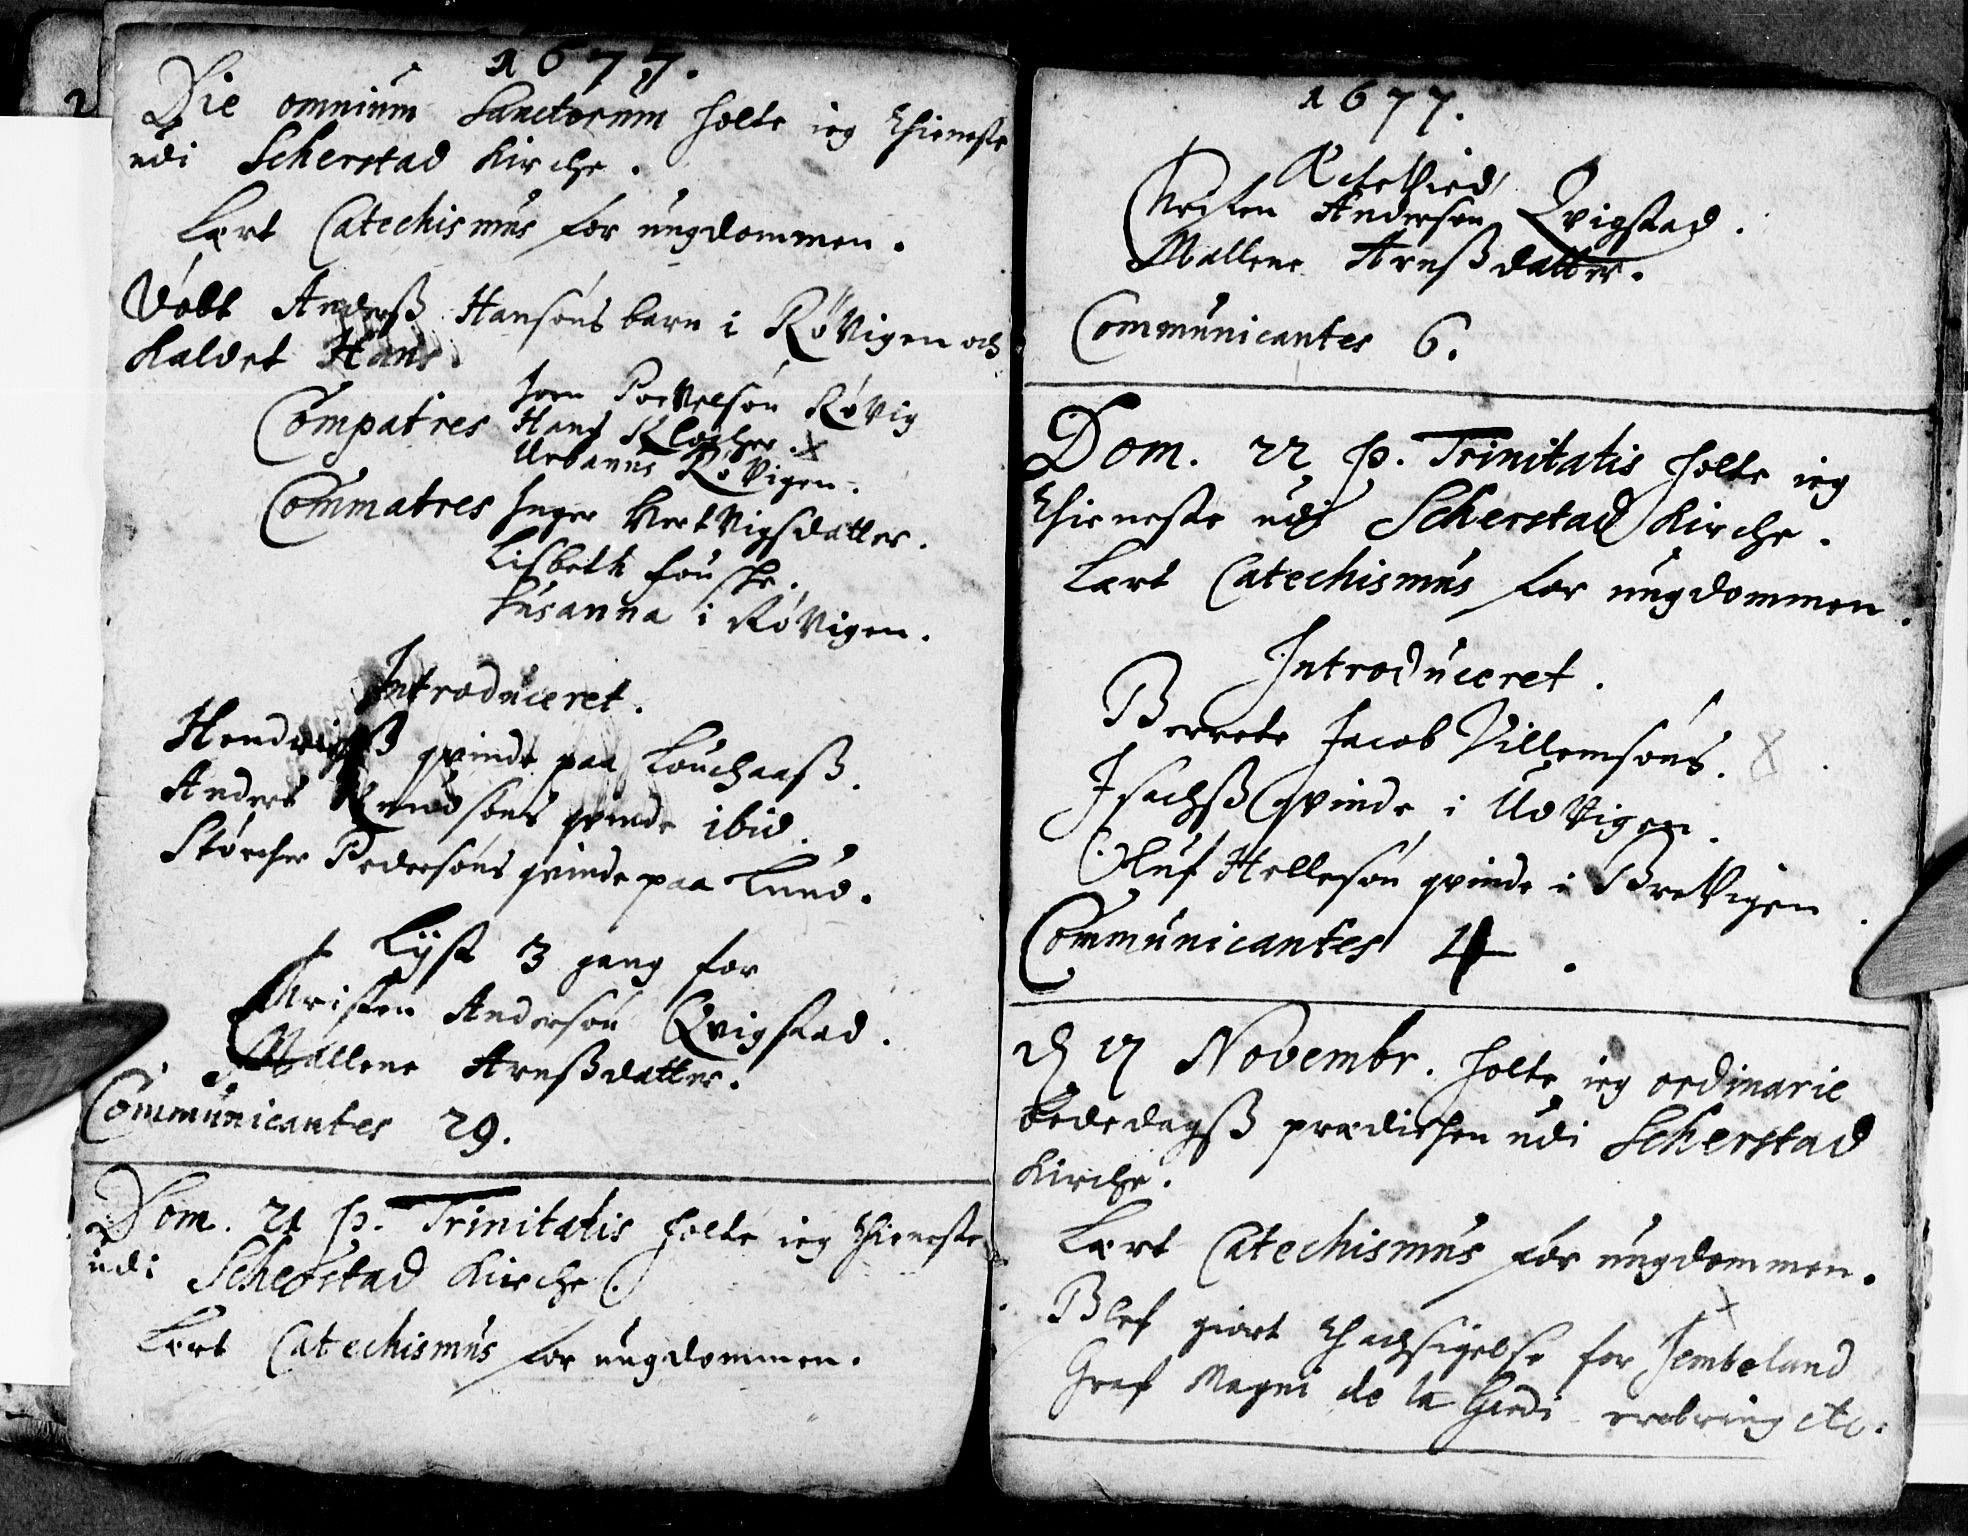 1677.
Die omnium Sanctorum holte ieg thieneste
udi Scherstad Kirche.
Lært Catechismus for ungdommen.
Døbt Anderß Hansøns barn i RøVigen och
kaldet Hans.
Compatres Joen PoeVelsøn RøVig
Hans Klocher. x
Urbanus RøVigen.
Commatres Inger HertVigsdatter.
Lisbeth Fouske.
Susanna i RøVigen.
Introduceret.
Hendrichß qvinde paa Louchaaß.
Anders Knudsøns qvinde ibid.
Størcher Pedersøns qvinde paa Lund.
+ Lÿst 3 gang for
Christen Andersøn Qvigstad.
Mallene Arnßdatter.
Communicantes 29.
Dom. 21 p. Trinitatis holte ieg thieneste
udi Scherstad Kirche.
Lært Catechismus for ungdommen.
1677.
Ectevied
Christen Andersøn Qvigstad.
Mallene Arnßdatter.
Communicantes 6.
Dom. 22 p. Trinitatis holte ieg
thieneste udi Scherstad Kirche.
Lært Catechismus for ungdommen.
Introduceret.
Berrete Jacob Villemsøns.
Isachß qvinde i UdVigen.
Oluf Hellesøn qvinde i BreVigen.
Communicantes 4.
d 17 Novembr. holte ieg ordinarie
bededagß prædichen udi Scherstad
Kirche.
Lært Catechismus for ungdommen.
Blef giort thachsigelse for Jembeland
Gref Magni de la Gardi erobring etc.